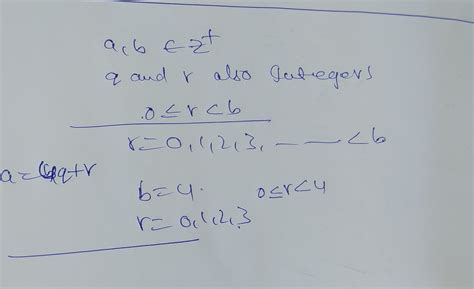 a, b ∈ Z⁺
q and r also Integers
0 ≤ r < b
r = 0, 1, 2, 3, — — < b
a = 4q + r
b = 4. 0 ≤ r < 4
r = 0, 1, 2, 3